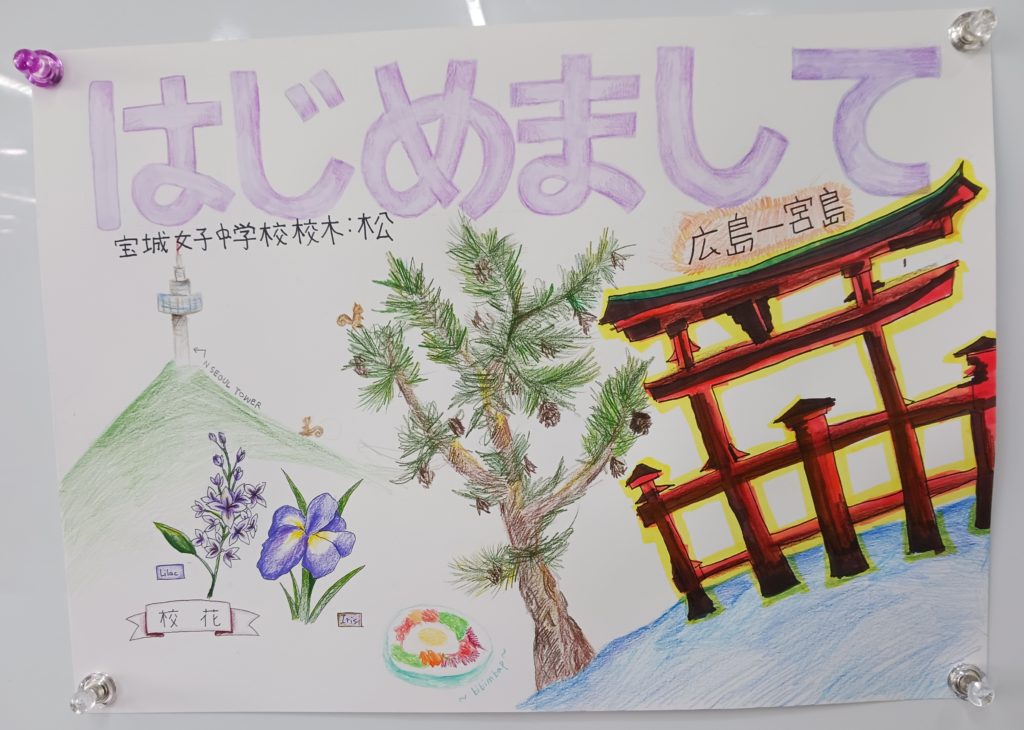 はじめまして
宝城女子中学校校木:松
広島－宮島
N SEOUL TOWER
Lilac
Iris
校花
~ bibimbap ~